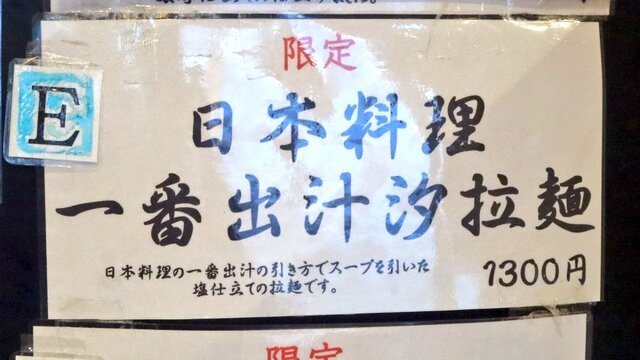 限定
E
日本料理
一番出汁汐拉麺
日本料理の一番出汁の引き方でスープを引いた
塩仕立ての拉麺です。
1300円
限定